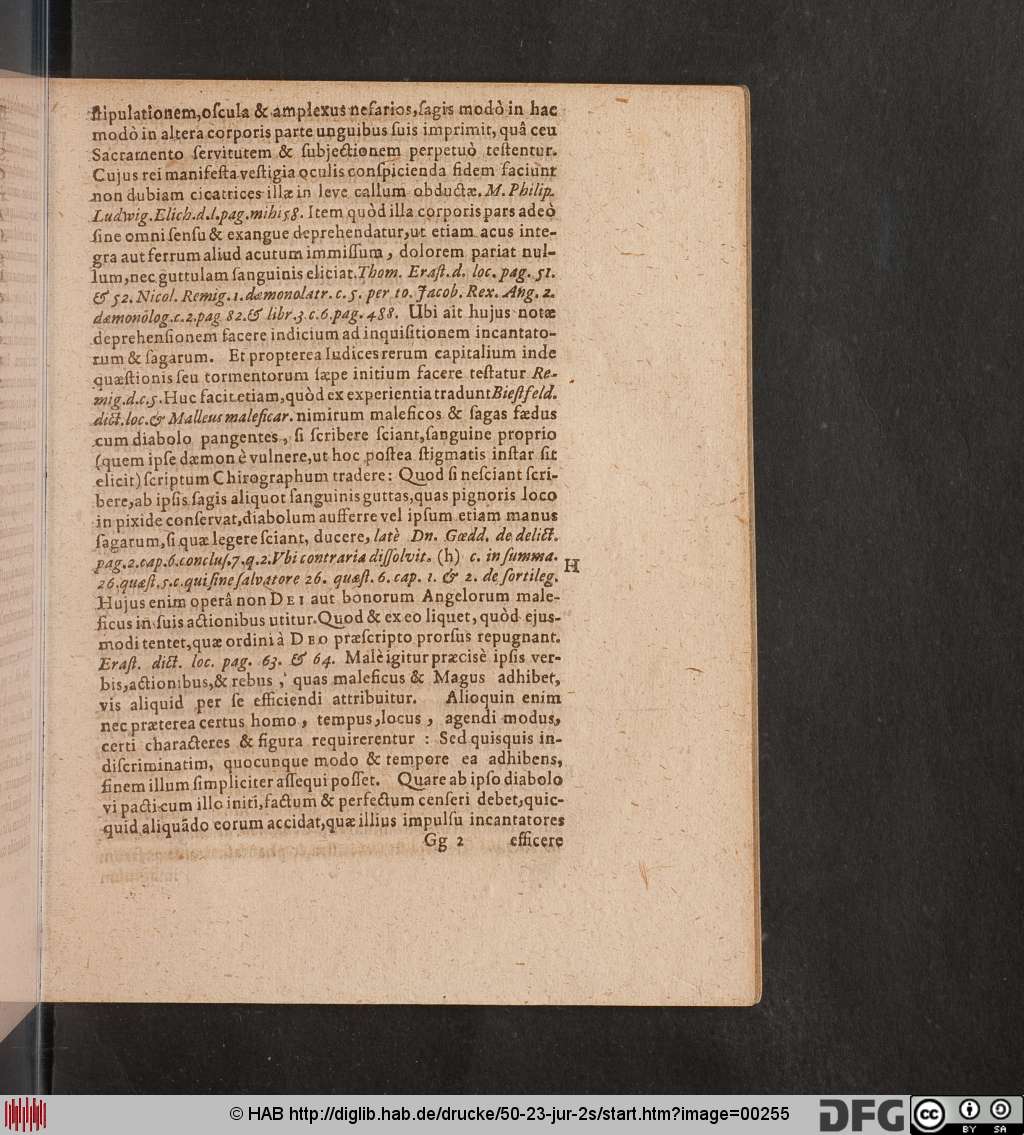 ſtipulationem,oſcula & amplexus nefarios,ſagis modò in hac
modò in altera corporis parte unguibus ſuis imprimit, quâ ceu
Sacramento ſervitutem & ſubjectionem perpetuò teſtentur.
Cujus rei manifeſta veſtigia oculis conſpicienda fidem faciunt
non dubiam cicatrices illæ in leve callum obductæ. M. Philip.
Ludwig. Elich. d. l. pag. mihi 58. Item quòd illa corporis pars adeò
ſine omni ſenſu & exangue deprehendatur,ut etiam acus inte-
gra aut ferrum aliud acutum immiſſum, dolorem pariat nul-
lum,nec guttulam ſanguinis eliciat. Thom. Eraſt. d. loc. pag. 51.
& 52. Nicol. Remig. 1. dæmonolatr. c. 5. per to. Jacob. Rex. Ang. 2.
dæmonolog. c. 2. pag 82. & libr. 3. c. 6. pag. 488. Ubi ait hujus notæ
deprehenſionem facere indicium ad inquiſitionem incantato-
rum & ſagarum. Et propterea Iudices rerum capitalium inde
quæſtionis ſeu tormentorum ſæpe initium facere teſtatur Re-
mig. d. c. 5. Huc facit etiam,quòd ex experientia tradunt Bieſtfeld.
dict. loc. & Malleus maleficar. nimirum maleficos & ſagas fœdus
cum diabolo pangentes, ſi ſcribere ſciant,ſanguine proprio
(quem ipſe dæmon è vulnere,ut hoc poſtea ſtigmatis inſtar ſit
elicit) ſcriptum Chirographum tradere: Quod ſi neſciant ſcri-
bere,ab ipſis ſagis aliquot ſanguinis guttas,quas pignoris loco
in pixide conſervat,diabolum aufferre vel ipſum etiam manus
ſagarum,ſi quæ legere ſciant, ducere, latè Dn. Gœdd. de delict.
pag. 2. cap. 6. concluſ. 7. q. 2. Vbi contraria diſſolvit. (h) c. in ſumma.
26. quæſt. 5. c. qui ſine ſalvatore 26. quæſt. 6. cap. 1. & 2. de ſortileg.
H
Hujus enim operâ non DEI aut bonorum Angelorum male-
ficus in ſuis actionibus utitur. Quod & ex eo liquet, quòd ejus-
modi tentet,quæ ordini à DEO præſcripto prorſus repugnant.
Eraſt. dict. loc. pag. 63. & 64. Malè igitur præcisè ipſis ver-
bis,actionibus,& rebus , quas maleficus & Magus adhibet,
vis aliquid per ſe efficiendi attribuitur. Alioquin enim
nec præterea certus homo, tempus,locus, agendi modus,
certi characteres & figura requirerentur : Sed quisquis in-
diſcriminatim, quocunque modo & tempore ea adhibens,
finem illum ſimpliciter aſſequi poſſet. Quare ab ipſo diabolo
vi pacti cum illo initi,factum & perfectum cenſeri debet,quic-
quid aliquãdo eorum accidat,quæ illius impulſu incantatores
Gg 2 efficere
© HAB http://diglib.hab.de/drucke/50-23-jur-2s/start.htm?image=00255
DFG
cc BY SA